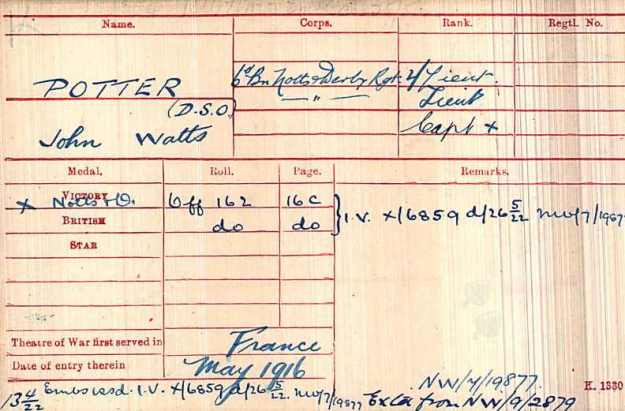 Name. Corps. Rank. Regtl. No.
POTTER 6th Bn Notts & Derby Rgt. 2/Lieut.
(D.S.O) — " — Lieut
John Watts Capt x
Medal. Roll. Page. Remarks.
VICTORY
x Notts & D. Off 162 16C } I.V. x/6859 d/26 5/22 NW/7/19877
BRITISH do do
STAR
Theatre of War first served in France
Date of entry therein May 1916
NW/7/19877. K. 1380
13 4/22 Emb issd. I.V. x/6859 d/26 5/22. NW/7/19877 Extd from NW/9/2879